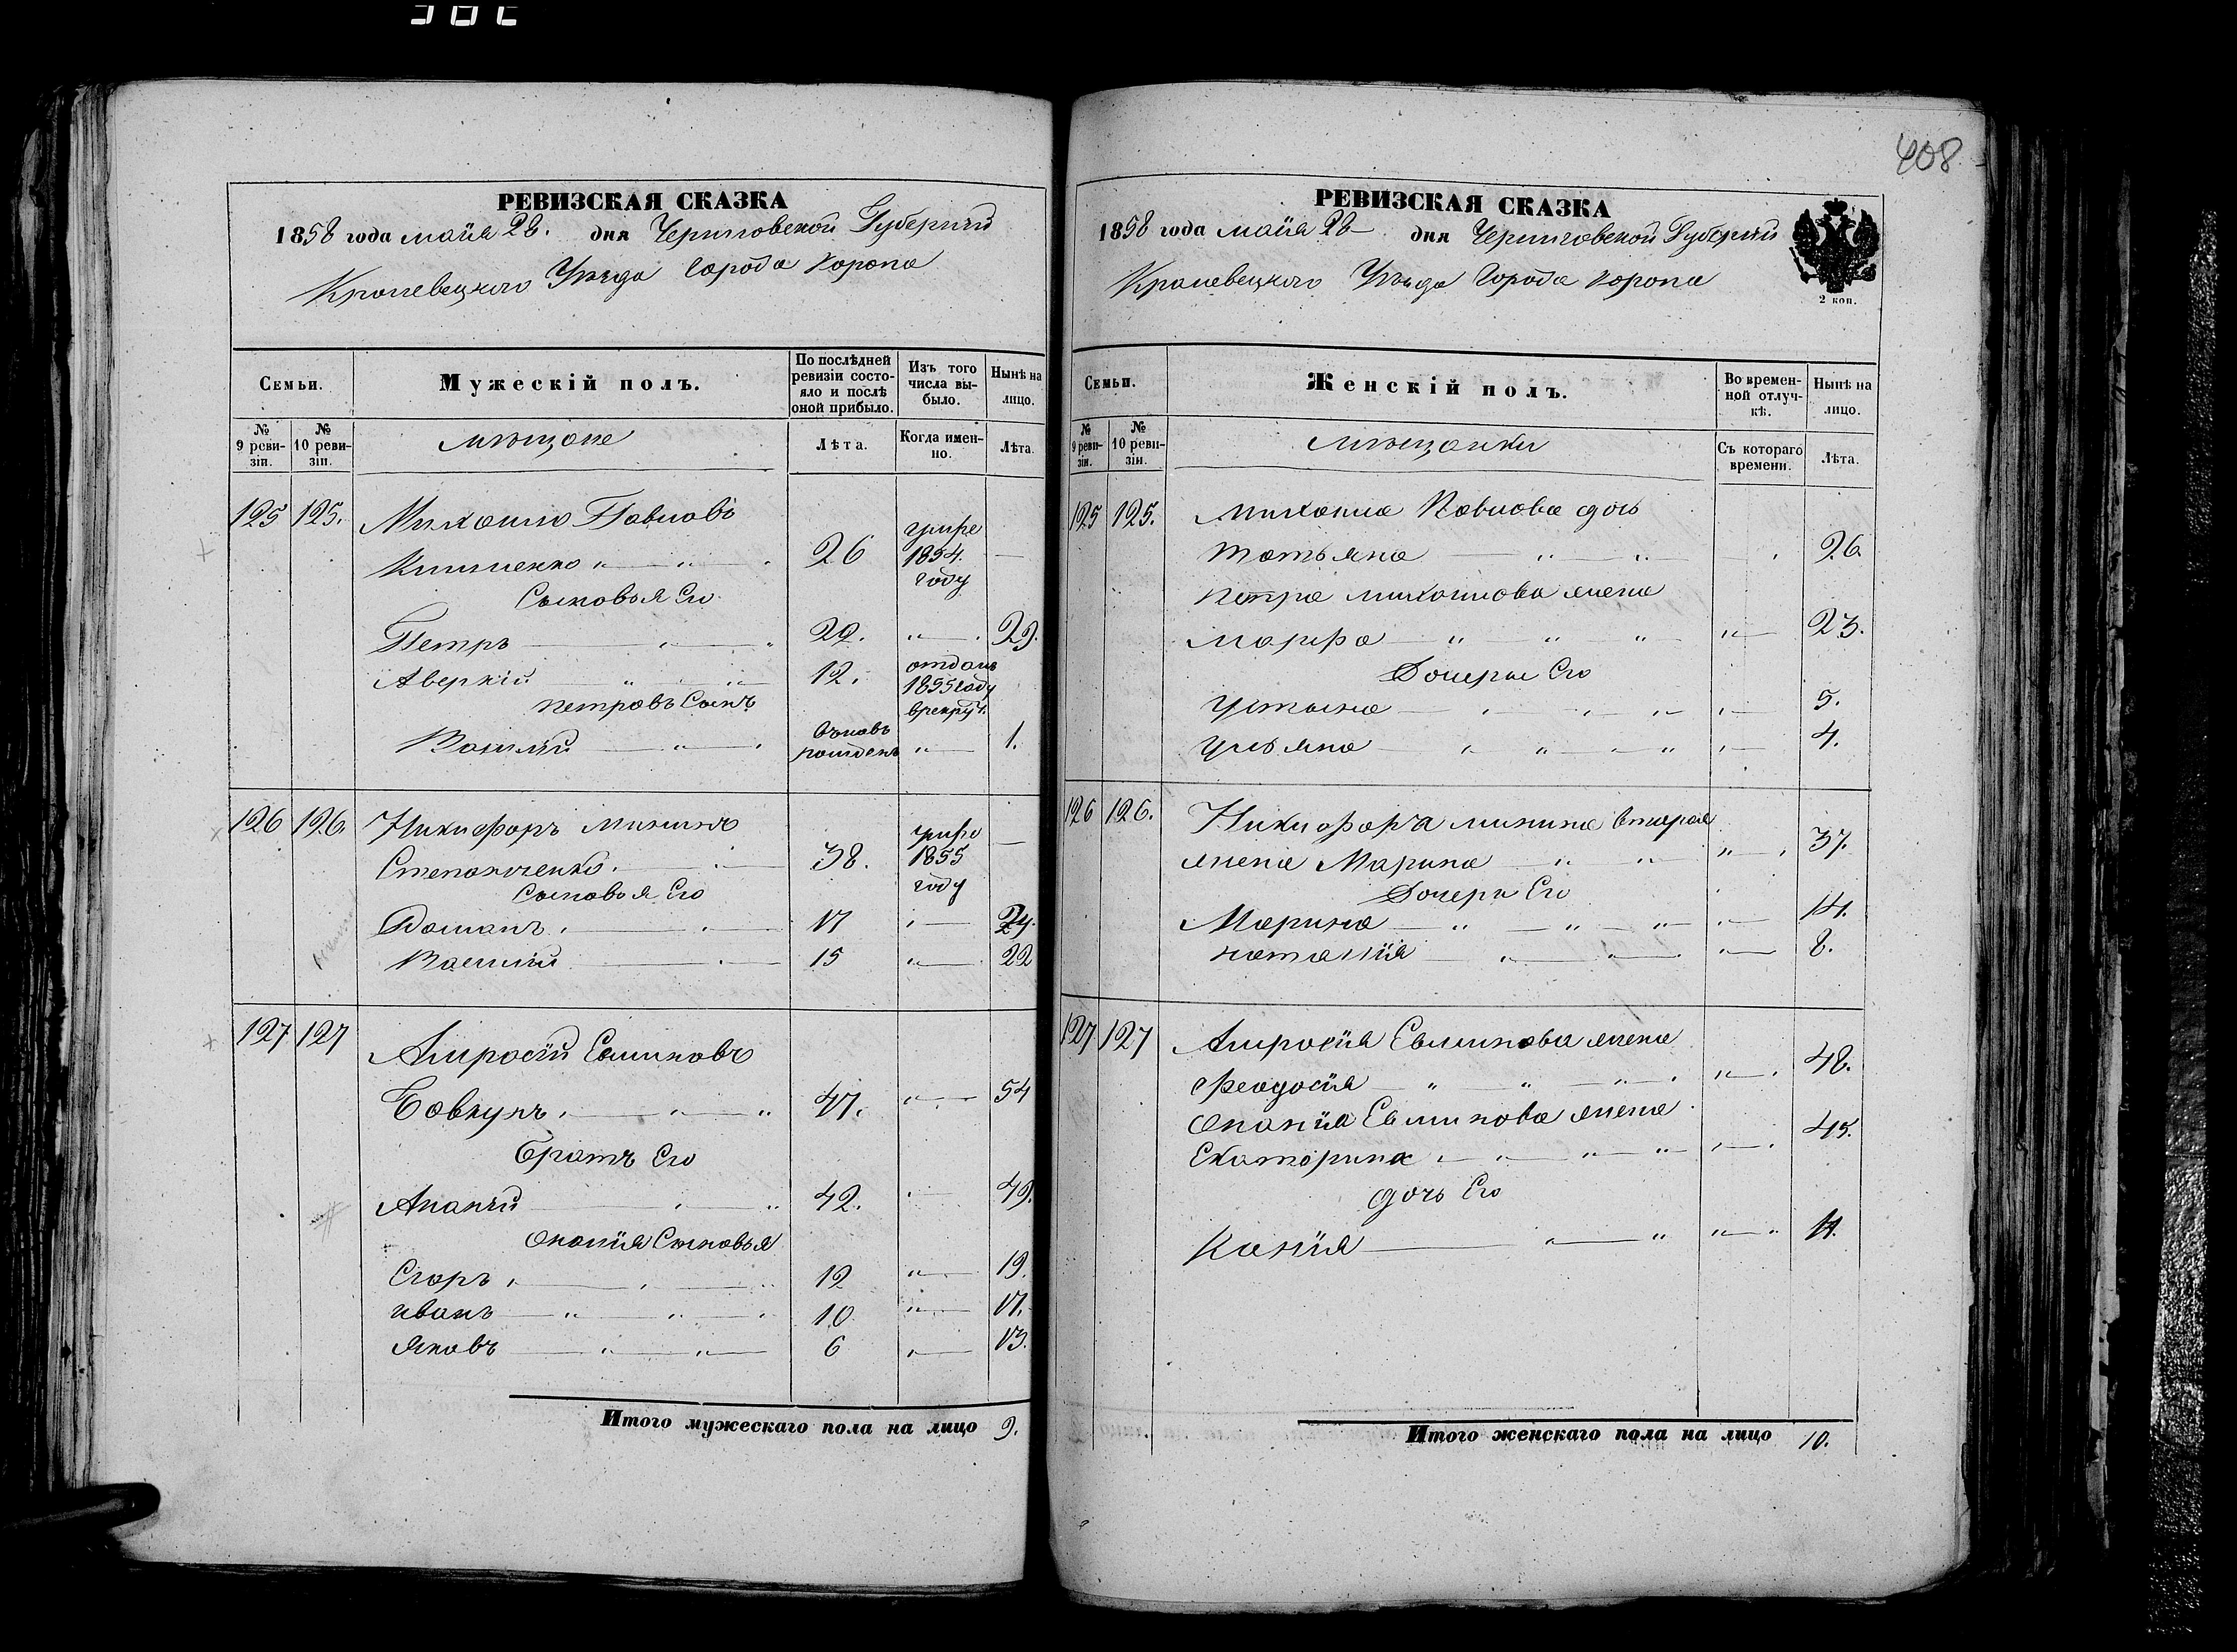 408
РЕВИЗСКАЯ СКАЗКА
1858 года майя 28. дня Черниговской Губерніи
Кролевецкого Уѣзда Города Коропа
Семьи.
Мужескій полъ.
По послѣдней ревизіи состояло и послѣ оной прибыло.
Изъ того числа выбыло.
Нынѣ на лицо.
№ 9 ревизіи.
№ 10 ревизіи.
мѣщане
Лѣта.
Когда именно.
Лѣта.
125 125. Михаило Павловъ
26 умре 1854. году —
Сыновья Его
Петръ 22. 29.
Аверкій 12. отданъ 1855 году врекрут.
Петровъ Сынъ
Василій вновь рожденъ 1.
126 126. Никифоръ Мининъ
Степанченко 38. умре 1855 году —
Сыновья Его
17 24.
Василий 15 22
127 127 Амросій
Бовкунъ 47. 54
Братъ Его
Ананій 42. 49.
Ананія Сыновья
Егоръ 12 19.
иванъ 10 17.
Яковъ 6 13.
Итого мужескаго пола на лицо 9.
РЕВИЗСКАЯ СКАЗКА
1858 года майя 28 дня Черниговской Губерніи
Кролевецкого Уѣзда Города Коропа
2 коп.
Семьи.
Женскій полъ.
Во временной отлучкѣ.
Нынѣ на лицо.
№ 9 ревизіи.
№ 10 ревизіи.
мѣщанки
Съ котораго времени.
Лѣта.
125 125. Михаила Павлова дочь
татьяна 26.
Петра михаилова жена
марфа 23.
Дочери Его
Устина 5.
Ульяна 4.
126 126. Никифора минина вторая
жена Марина 37.
Дочери Его
Марина 14.
наталія 8.
127 127 Амросія жена
Феодосія 48.
Ананія жена
Екатерина 45.
дочь Его
Ксенія
Итого женскаго пола на лицо 10.